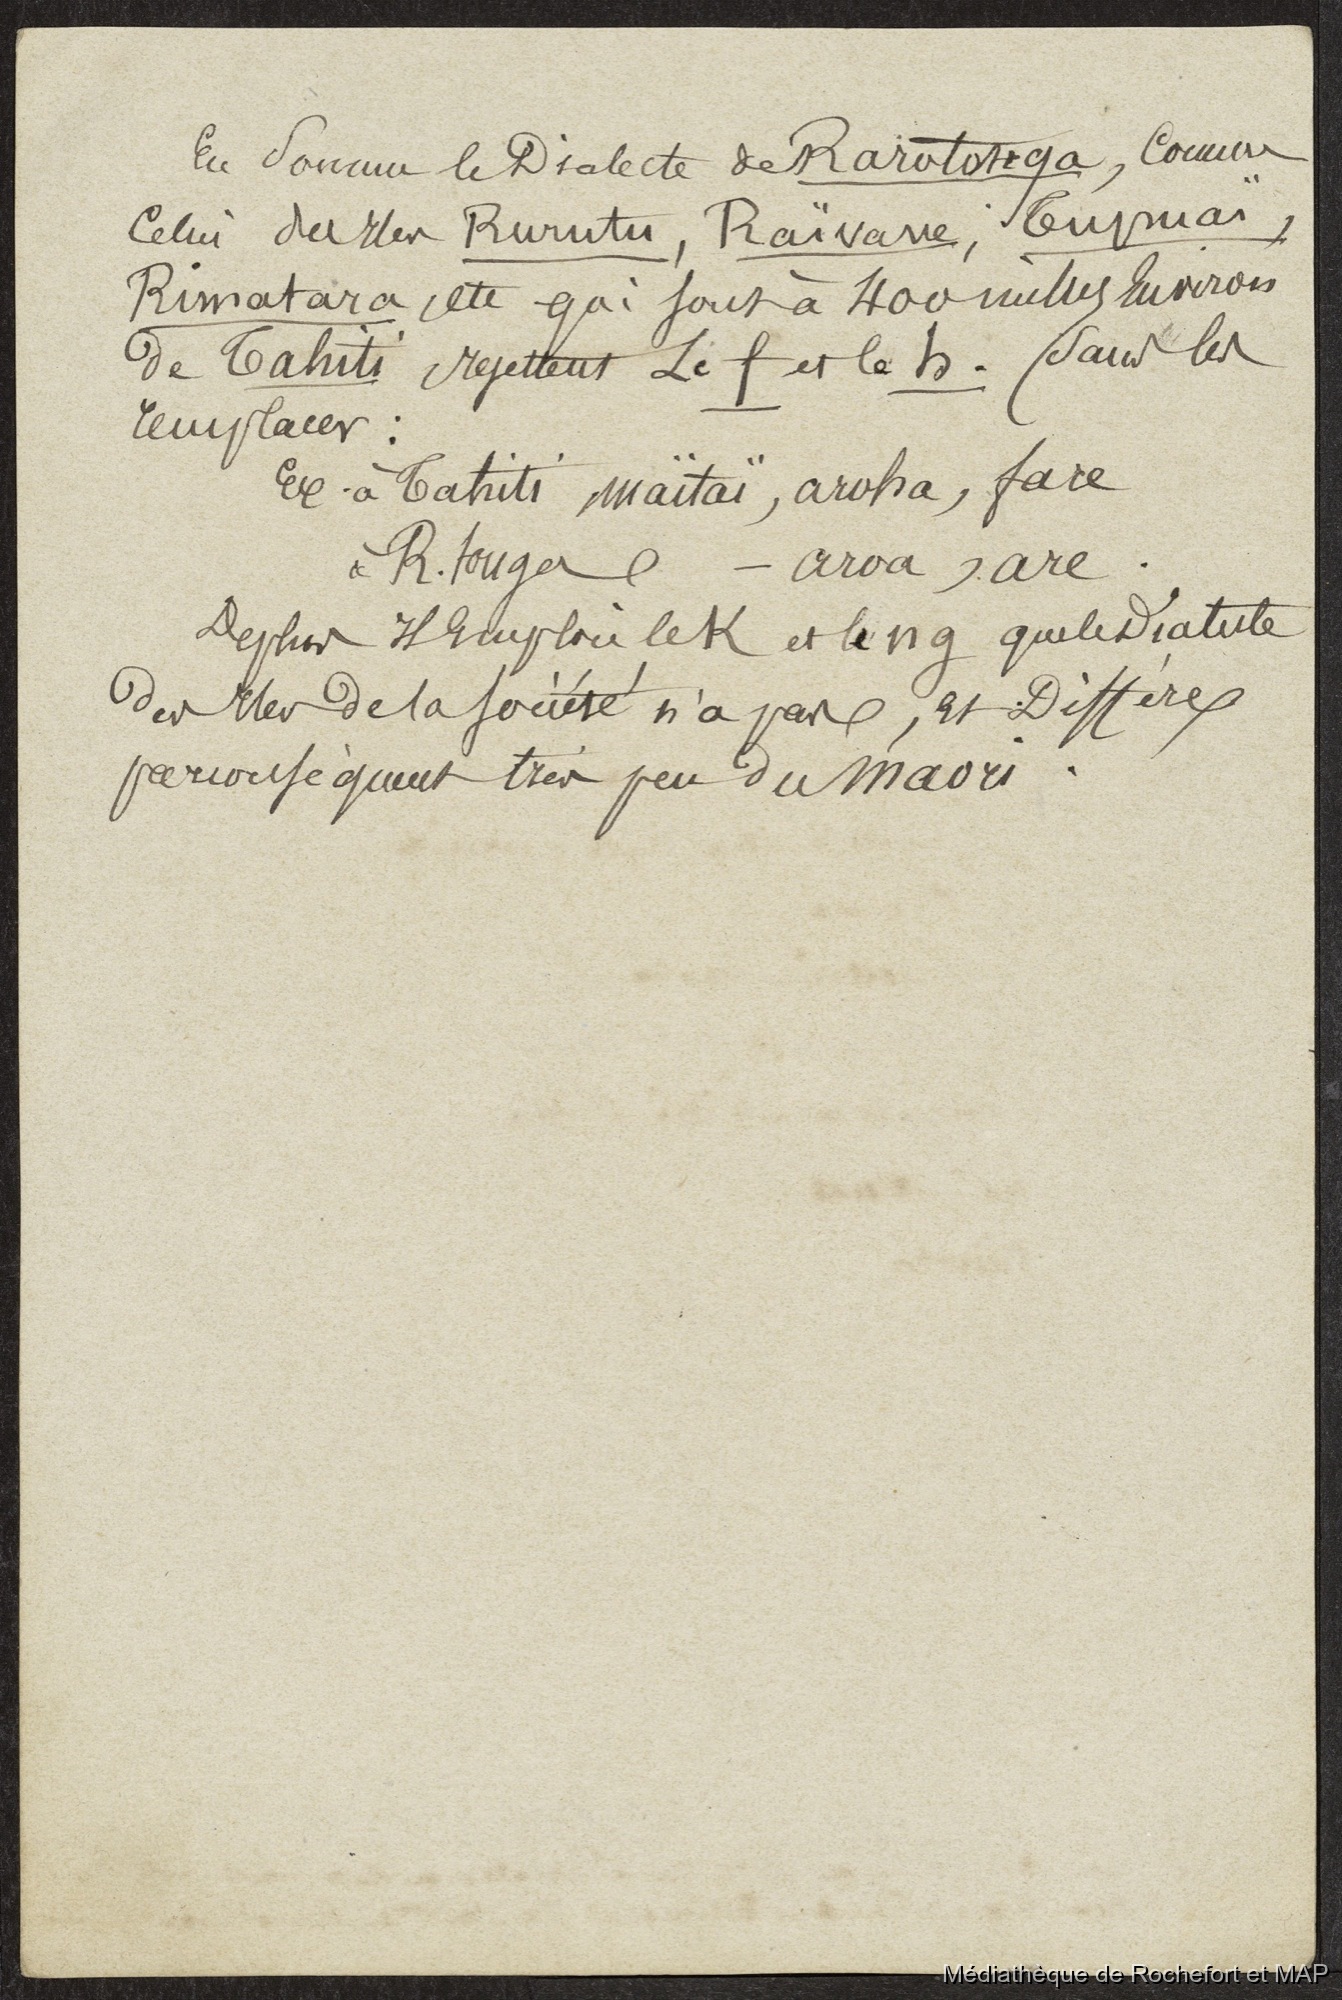 En Somme le Dialecte de Rarotonga, Comme
Celui des Iles Rurutu, Raïvavae, Tupuaï,
Rimatara, etc qui sont à 400 milles Environ
de Tahiti rejettent Le f et le h. Sans les
remplacer :
Ex. à Tahiti maïtaï, aroha, fare
à R. tonga — aroa, are.
De plus Il Emploie le K et le ng que le Dialecte
Des Iles De la Société n'a pas, et Diffère
par conséquent très peu Du Maori.
Médiathèque de Rochefort et MAP